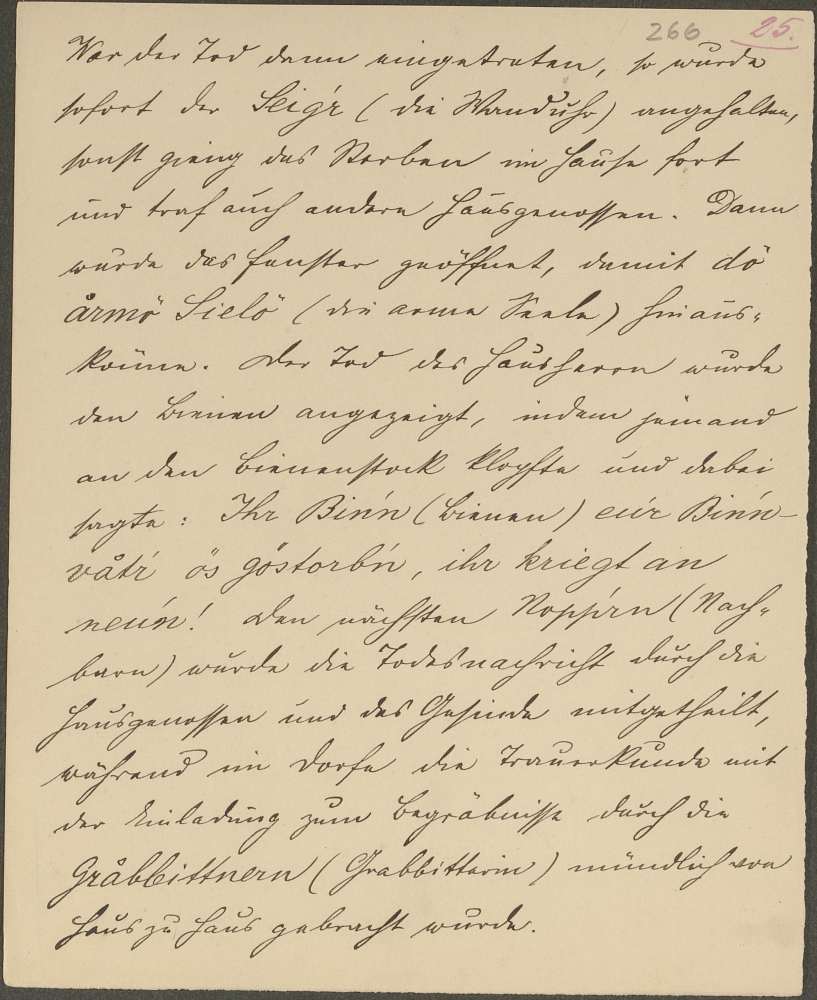 266 25.
War der Tod dann eingetreten, so wurde
sofort der Seig'r (die Wanduhr) angehalten,
sonst gieng das Sterben im Hause fort
und traf auch andere Hausgenossen. Dann
wurde das Fenster geöffnet, damit dö
årmö Sielö (die arme Seele) hinaus=
könne. Der Tod des Hausherrn wurde
den Bienen angezeigt, indem jemand
an den Bienenstock klopfte und dabei
sagte: Ihr Binn (Bienen) eu'r Binn-
våtr' ös göstorb'n, ihr kriegt an
neu'n! Den nächsten Nopp'rn (Nach=
barn) wurde die Todesnachricht durch die
Hausgenossen und das Gesinde mitgetheilt,
während im Dorfe die Trauerkunde mit
der Einladung zum Begräbnisse durch die
Gråbbittnern (Grabbitterin) mündlich von
Haus zu Haus gebracht wurde.